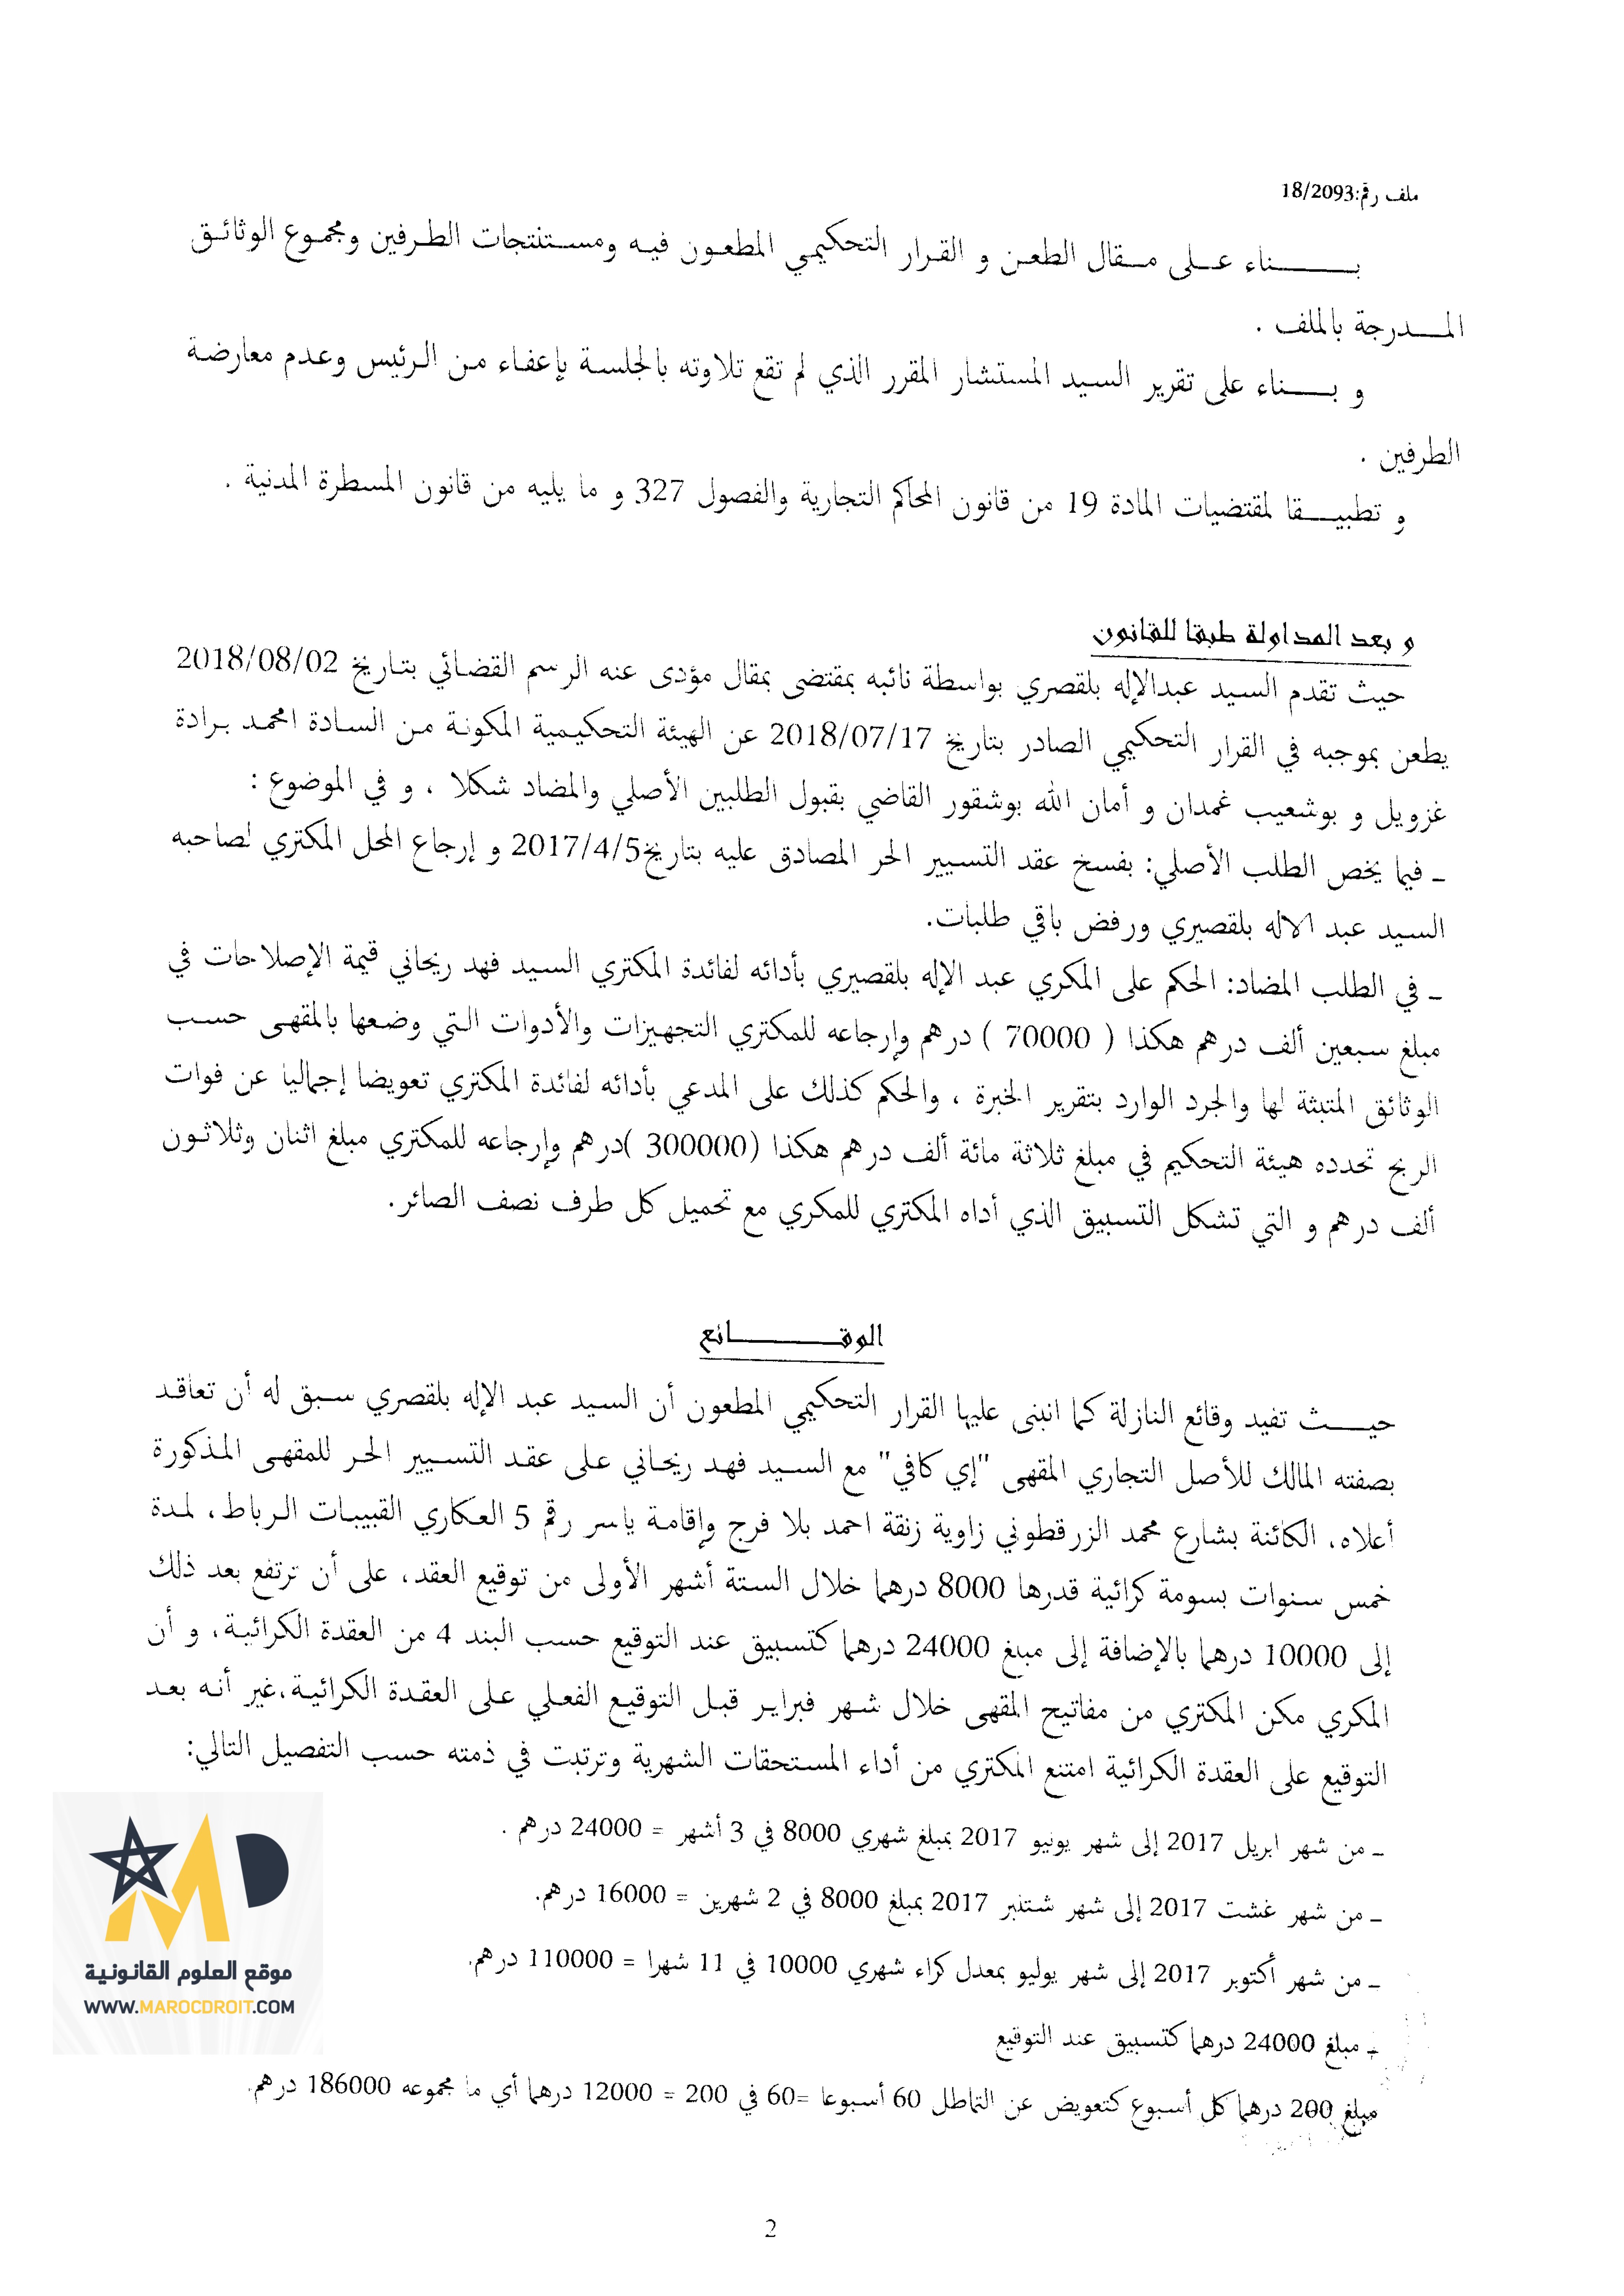 ملف رقم:18/2093
بـــــــناء عـــلى مـــقال الطعـن و القـرار التحكيمـي المطعـون فيـه ومسـتنتجات الطـرفين ومجمـوع الوثائـق
المــــدرجة بالملف .
و بــــناء على تقرير السـيد المستشار المقرر الذي لم تقع تلاوته بالجلسـة بإعفـاء مـن الـرئيس وعـدم معارضـة
الطرفين .
و تطبيــــقا لمقتضيات المادة 19 من قانون المحاكم التجارية والفصول 327 و ما يليه من قانون المسطرة المدنية .
و بعد المداولة طبقا للقانون
حيث تقدم السـيد عبدالإله بلقصري بواسطة نائبه بمقتضى بمقال مؤدى عنه الرسم القضـائي بتـاريخ 2018/08/02
يطعن بموجبه في القرار التحكيمي الصادر بتاريخ 2018/07/17 عن الهيئة التحكيمية المكونـة مـن السـادة امحمـد بـرادة
غزويل و بوشعيب غمدان و أمان الله بوشقور القاضي بقبول الطلبين الأصلي والمضاد شكلا ، و في الموضوع :
ـ فيما يخص الطلب الأصلي: بفسخ عقد التسيير الحر المصادق عليه بتاريخ2017/4/5 و إرجاع المحل المكتري لصاحبه
السـيد عبد الاله بلقصيري ورفض باقي طلبات.
ـ في الطلب المضاد: الحكم على المكري عبد الإله بلقصيري بأدائه لفائدة المكتري السـيد فهد ريحاني قيمة الإصلاحات في
مبلغ سـبعين ألف درهم هكذا ( 70000 ) درهم وإرجاعه للمكتري التجهيزات والأدوات الـتي وضـعها بالمقهـى حسـب
الوثائق المتبثة لها والجرد الوارد بتقرير الخبرة ، والحكم كذلك على المدعي بأدائه لفائدة المكتري تعويضا إجماليا عن فوات
الربح تحدده هيئة التحكيم في مبلغ ثلاثة مائة ألف درهم هكذا (300000 )درهم وإرجاعه للمكتري مبلغ اثنان وثلاثـون
ألف درهم و التي تشكل التسبيق الذي أداه المكتري للمكري مع تحميل كل طرف نصف الصائر.
الوقــــــــائع
حيــــث تفيد وقائع النازلة كما انبنى عليها القرار التحكيمي المطعون أن السـيد عبد الإله بلقصري سـبق له أن تعاقـد
بصفته المالك للأصل التجاري المقهى "إي كافي" مع السـيد فهـد ريحـاني عـلى عقـد التسـيير الحـر للمقهـى المـذكورة
أعلاه، الكائنة بشارع محمد الزرقطوني زاوية زنقة احمد بلا فرج وإقامة ياسر رقم 5 العكاري القبيبـات الـرباط، لمـدة
خمس سـنوات بسومة كرائية قدرها 8000 درهما خلال السـتة أشهر الأولى من توقيع العقد، على أن ترتفع بعد ذلك
إلى 10000 درهما بالإضافة إلى مبلغ 24000 درهما كتسبيق عند التوقيع حسب البند 4 من العقدة الكرائيـة، و أن
المكري مكن المكتري من مفاتيح المقهى خلال شـهر فبرايـر قبـل التوقيـع الفعـلي عـلى العقـدة الكرائيـة،غير أنـه بعـد
التوقيع على العقدة الكرائية امتنع المكتري من أداء المسـتحقات الشهرية وترتبت في ذمته حسب التفصيل التالي:
ـ من شهر ابريل 2017 إلى شهر يونيو 2017 بمبلغ شهري 8000 في 3 أشهر = 24000 درهم .
ـ من شهر غشت 2017 إلى شهر شـتنبر 2017 بمبلغ 8000 في 2 شهرين = 16000 درهم.
ـ من شهر أكتوبر 2017 إلى شهر يوليو بمعدل كراء شهري 10000 في 11 شهرا = 110000 درهم.
ـ مبلغ 24000 درهما كتسبيق عند التوقيع
مبلغ 200 درهما كل أسـبوع كتعويض عن التماطل 60 أسـبوعا =60 في 200 = 12000 درهما أي ما مجموعه 186000 درهم.
موقع العلوم القانونية
WWW.MAROCDROIT.COM
2